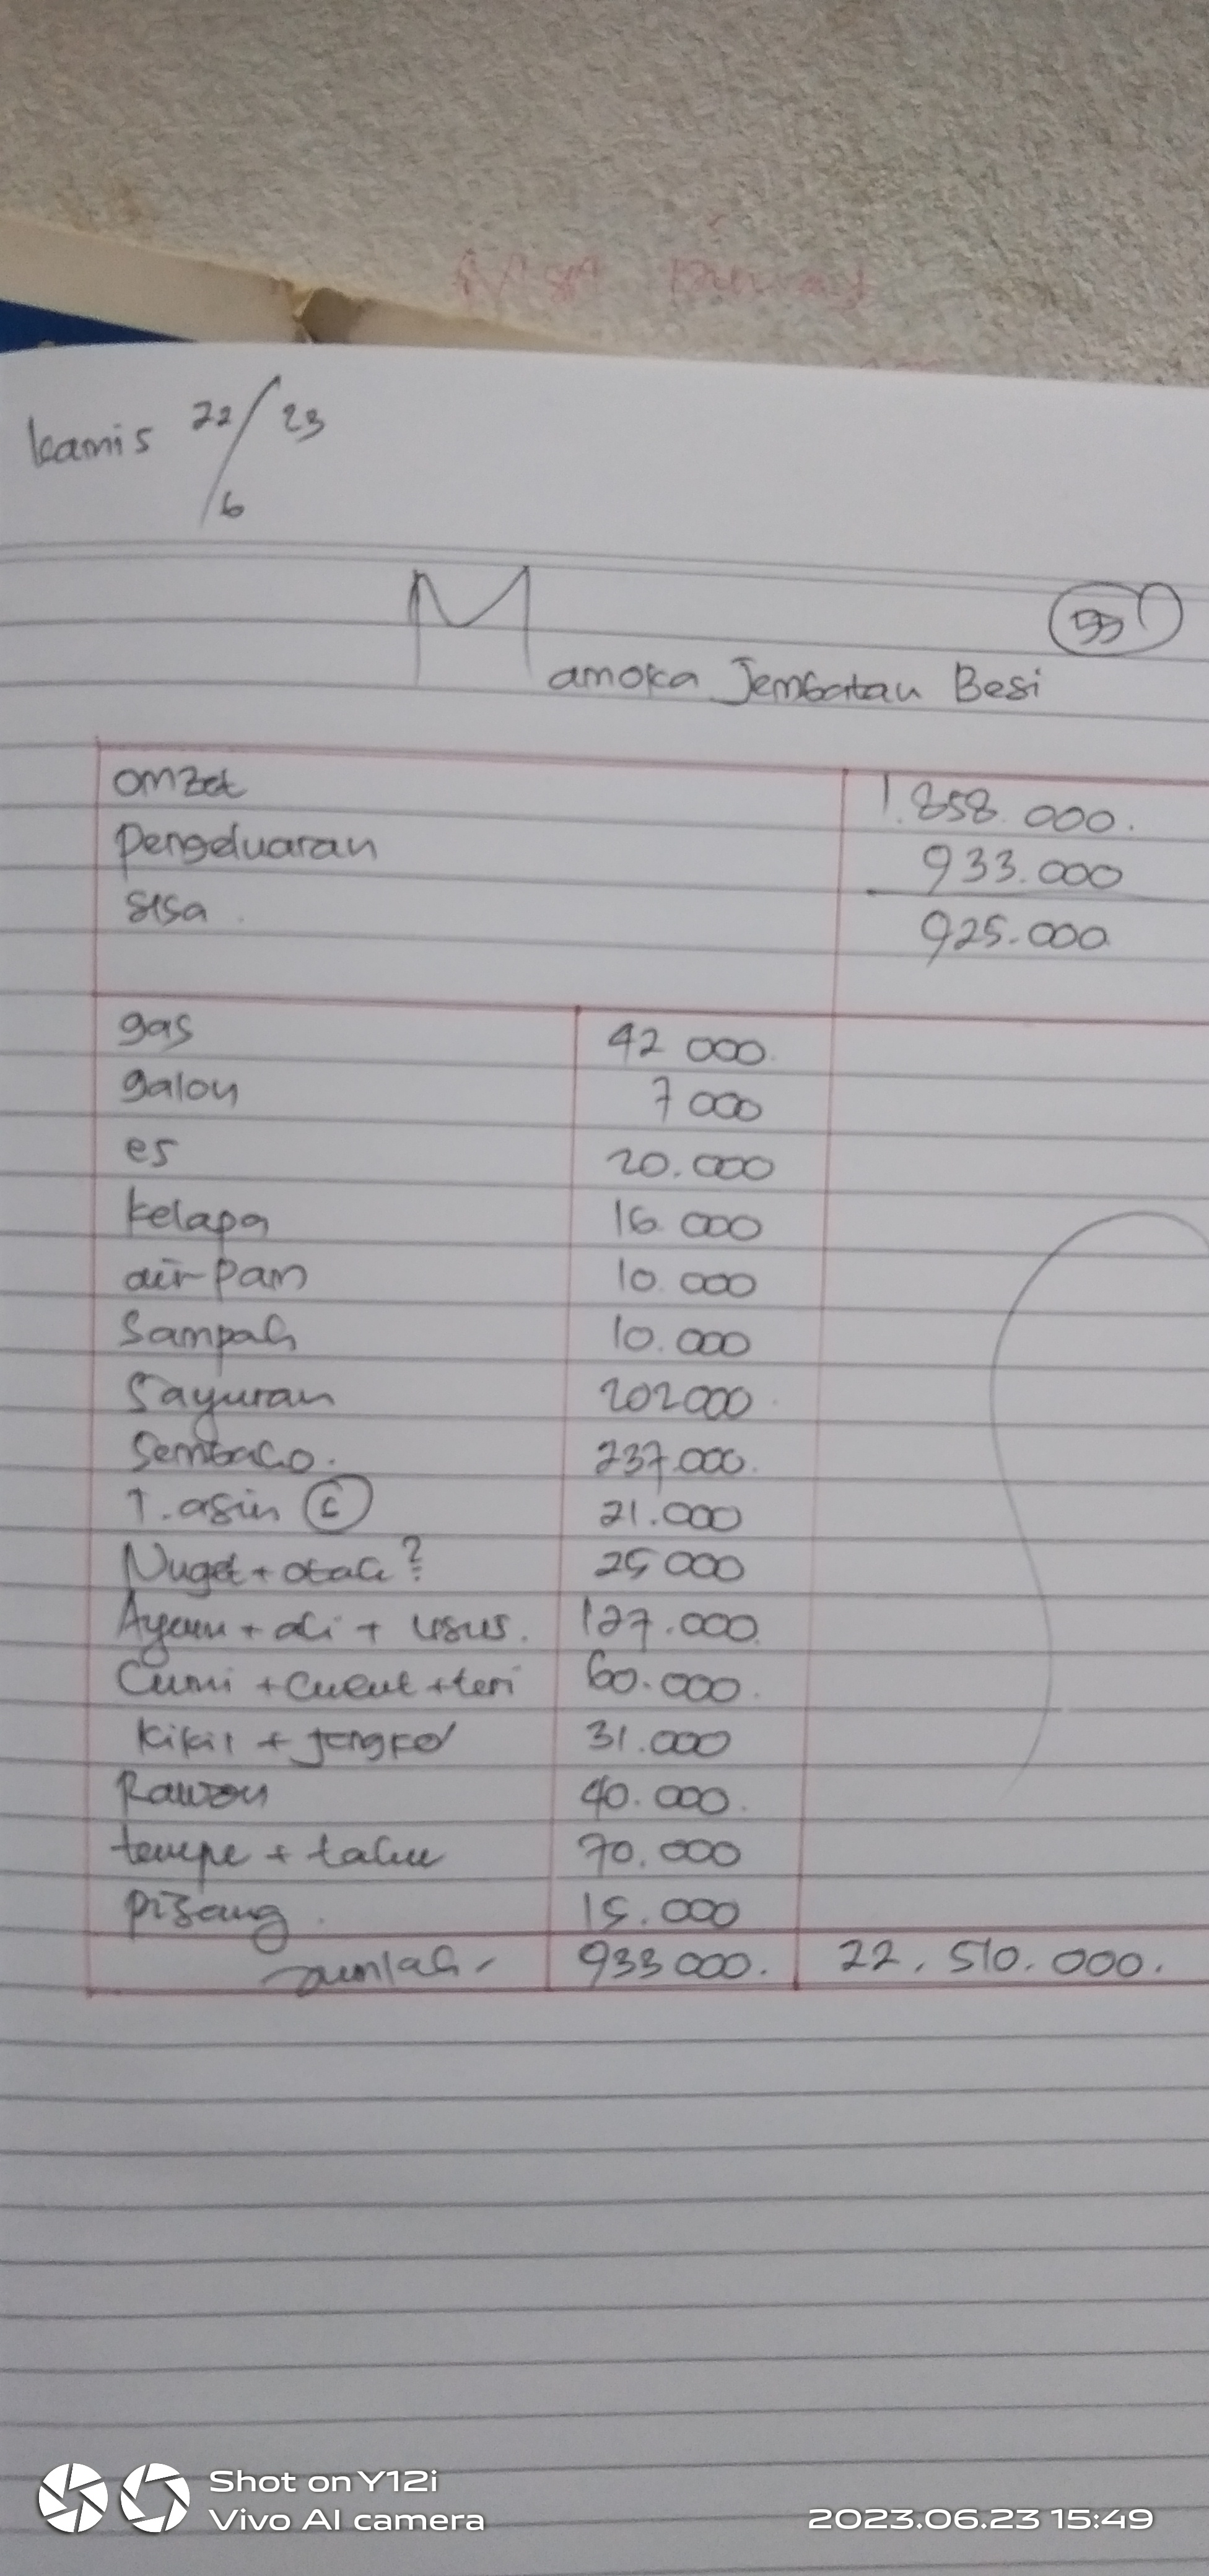 Kamis 22/6 23
Mamoka Jembatan Besi
omzet 1.858.000.
pengeluaran 933.000
sisa 925.000
gas 42 000.
galon 7 000
es 20.000
kelapa 16 000
air pam 10.000
Sampah 10.000
Sayuran 202000
Sembako. 237.000.
T. asin 6 21.000
Nuget + otak? 25 000
Ayam + ati + usus. 127.000
Cumi + cucut + teri 60.000.
kikil + jengkol 31.000
Rawon 40.000.
tempe + tahu 70.000
pisang. 15.000
Jumlah - 933 000. 22.510.000.
Shot on Y12i
Vivo AI camera
2023.06.23 15:49